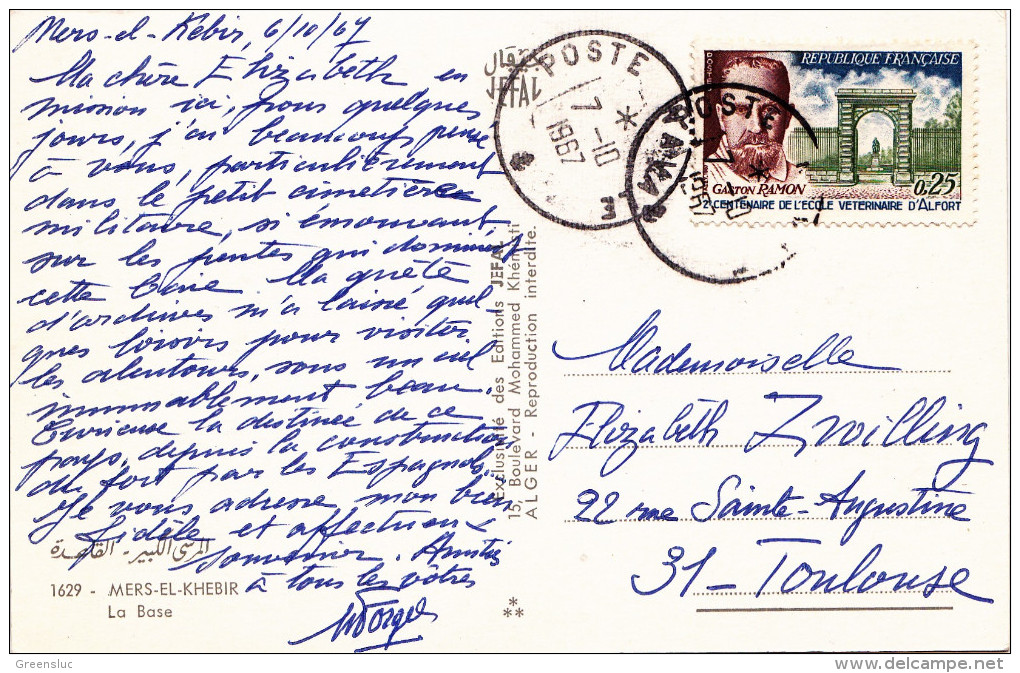 Mers-el-Kébir, 6/10/67
Ma chère Elizabeth en
mission ici, pour quelques
jours, j'ai beaucoup pensé
à vous, particulièrement
dans le petit cimetière
militaire, si émouvant,
sur les pentes qui dominent
cette baie Ma quête
d'archives m'a laissé quel
ques loisirs pour visiter
les alentours, sous un ciel
immuablement beau.
Curieuse la destinée de ce
pays, depuis la construction
du fort par les Espagnols.
Je vous adresse mon bien
fidèle et affectueux
souvenir. Amitiés
à tous les vôtres
المرسى الكبير - القاعدة
1629 - MERS-EL-KHEBIR
La Base
Exclusivité des Editions JEFAL
15, Boulevard Mohammed Khémisti
ALGER - Reproduction interdite.
جفال
JEFAL
POSTE
7 -10
1967
POSTE
REPUBLIQUE FRANÇAISE
POSTES
GASTON RAMON
0,25
2e CENTENAIRE DE L'ECOLE VETERINAIRE D'ALFORT
Mademoiselle
Elizabeth Zwilling
22 rue Sainte-Augustine
31-Toulouse
Greensluc
delcampe.net